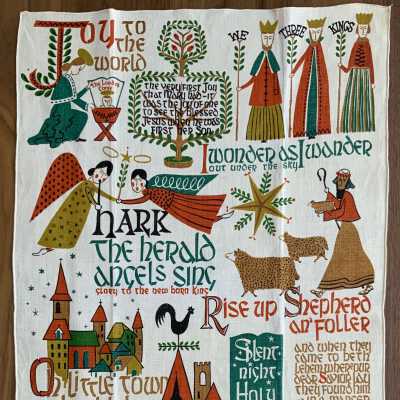 Joy to
the
world
The Lord is
Come
the very first Joy
that Mary had – it
was the joy of one
to see the blessed
Jesus when he was
first her Son
WE THREE KINGS
I wonder as I wander
out under the sky
HARK
the herald
angels sing
glory to the new born King
Rise up Shepherd
an' foller
Oh little town
Silent
night
Holy
and when they
came to beth
lehem where our
dear Saviour lay
they found him
in a manger